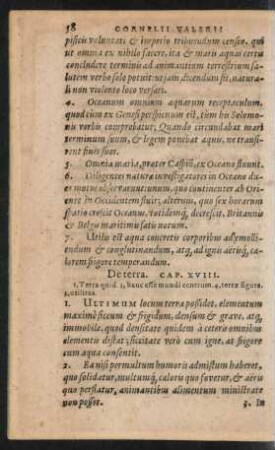 58 CORNELII VALERII
pificis voluntati & imperio tribuendum censeo, qui
ut omnia ex nihilo facere, ita & maris aquas certis
concludere terminis ad animantium terrestrium sa-
lutem verbo solo potuit: us jam dicendum sit, natura-
li non violento loco versari.
4. Oceanum omnium aquarum receptaculum,
quod cùm ex Genesi perspicuum est, tùm his Solomo-
nis verbis comprobatur; Quando circundabat mari
terminum suum, & legem ponebat aquis, ne transi-
rent fines suos.
5. Omnia maria, præter Caspiũ, ex Oceano fluunt.
6. Diligentes naturæ investigatores in Oceano du-
os motus observarunt: unum, quo continenter ab Ori-
ente in Occidentem fluit; alterum, quo sex horarum
spatio crescit Oceanus, totidemq́; decrescit, Britannis
& Belgis maritimis satis notum.
7. Utilis est aqua concretis corporibus ad emolli-
endum & conglutinandum, atq; ad ignis aërisq́; calo-
rem frigore temperandum.
De terra. CAP. XVIII.
1. Terra quid. 3, hanc esse mundi centrum. 4, terræ figura.
5, utilitas.
1. ULTIMUM locum terra possidet, elementum
maximè siccum & frigidum, densum & grave, atq;
immobile, quod densitate quidem à ceteris omnibus
elementis distat; siccitate verò cum igne, at frigore
cum aqua consentit.
2. Ea nisi permultum humoris admistum haberet,
quo solidatur, multumq́; caloris quo fovetur, & aëris
quo perflatur, animantibus alimentum ministrare
non posset. 3. In